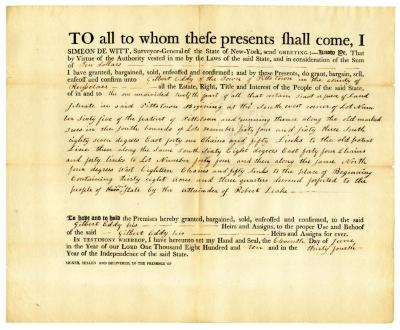 TO all to whom these presents shall come, I
SIMEON DE WITT, Surveyor-General of the State of New-York, send GREETING: Know Ye, That
by Virtue of the Authority vested in me by the Laws of the said State, and in consideration of the Sum
of Ten dollars
I have granted, bargained, sold, enfeoffed and confirmed; and by these Presents, do grant, bargain, sell,
enfeoff and confirm unto Gilbert Eddy of the Town of Pittstown in the county of
Rensselaer all the Estate, Right, Title and Interest of the People of the said State,
of in and to the one undivided part of all that certain piece of Land
situate in said Pittstown Beginning at the South west corner of Lot Num
ber Sixty five of the patent of Pittstown and running thence along the old marked
trees in the South bounds of Lots number sixty four and sixty three South
eighty seven degrees East forty one Chains and fifty Links to the old patent
Line then along the same South Sixty Eight degrees East forty four Chains
and forty links to Lot Number forty four and then along the same North
four degrees West Eighteen Chains and fifty Links to the place of Beginning
Containing thirty eight acres and three quarters forfeited to the
people of this State by the attainder of Robert Leake
To have and to hold the Premises hereby granted, bargained, sold, enfeoffed and confirmed, to the said
Gilbert Eddy his Heirs and Assigns, to the proper Use and Behoof
of the said Gilbert Eddy his Heirs and Assigns for ever.
IN TESTIMONY WHEREOF, I have hereunto set my Hand and Seal, the Eleventh Day of June
in the Year of our LORD One Thousand Eight Hundred and ten and in the Thirty fourth
Year of the Independence of the said State.
SIGNED, SEALED AND DELIVERED, IN THE PRESENCE OF